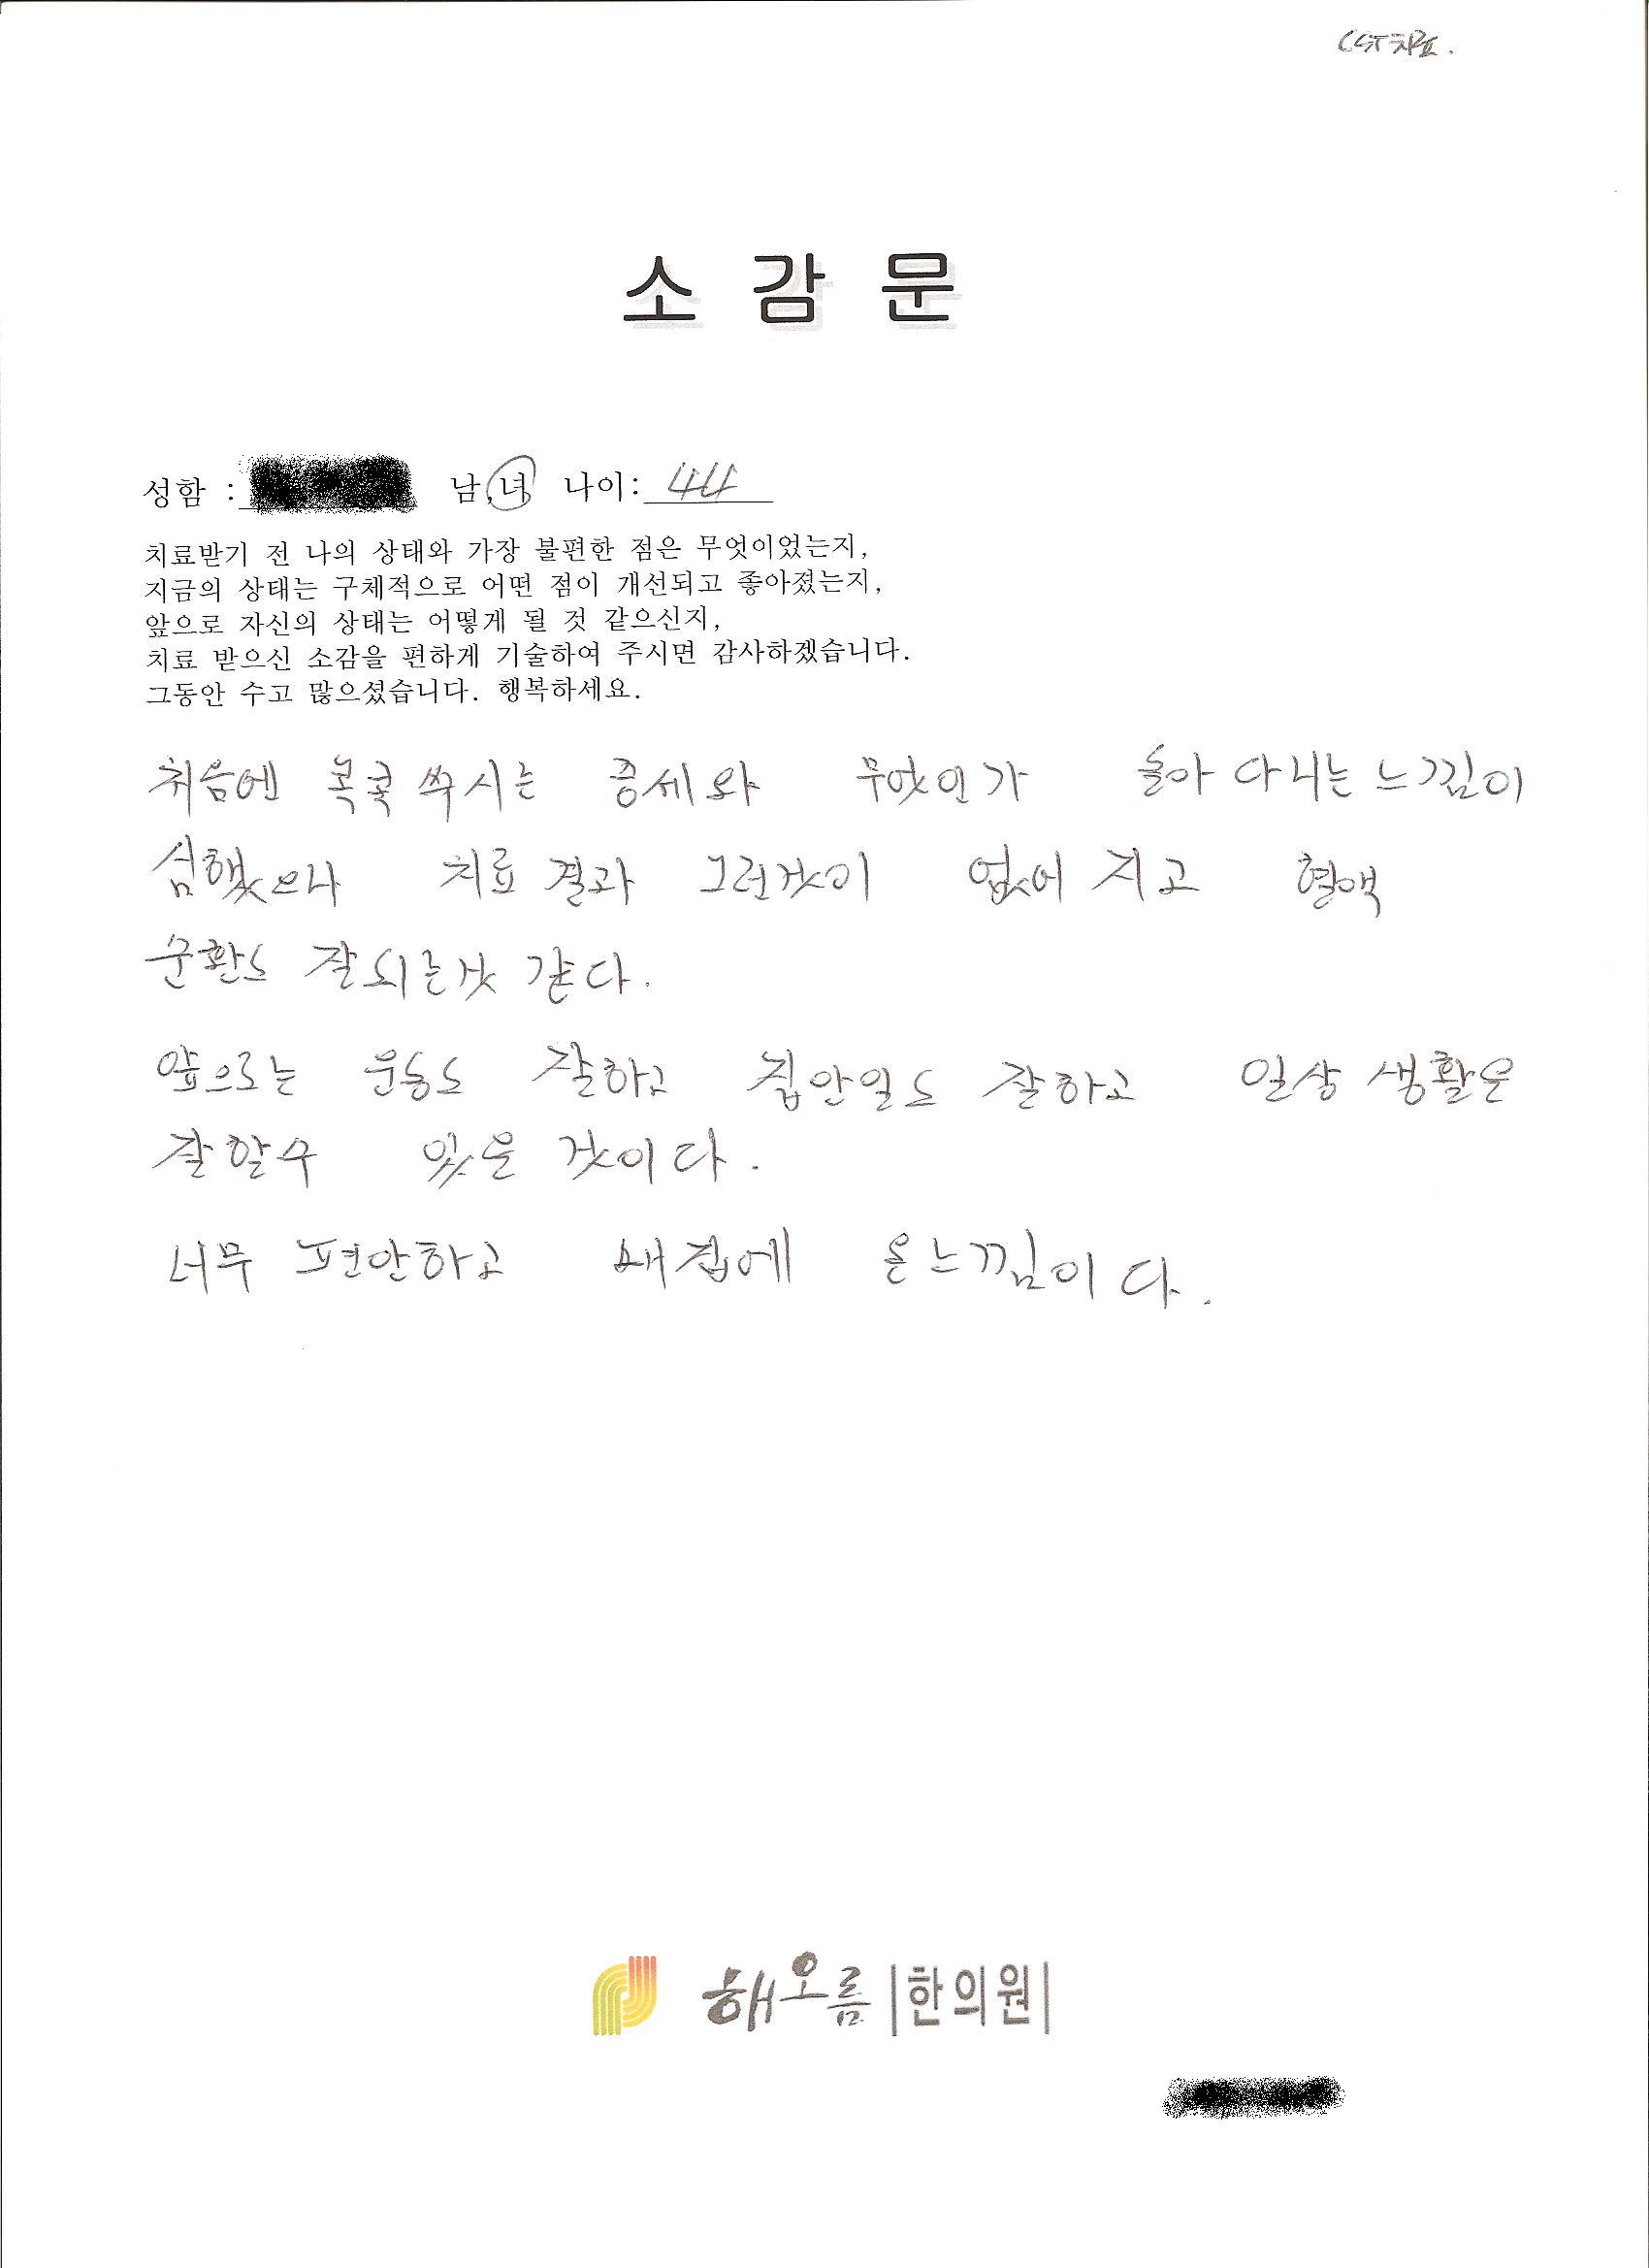 CST치료.
소 감 문
성함 : 남,녀 나이: 44
치료받기 전 나의 상태와 가장 불편한 점은 무엇이었는지,
지금의 상태는 구체적으로 어떤 점이 개선되고 좋아졌는지,
앞으로 자신의 상태는 어떻게 될 것 같으신지,
치료 받으신 소감을 편하게 기술하여 주시면 감사하겠습니다.
그동안 수고 많으셨습니다. 행복하세요.
처음엔 콕콕 쑤시는 증세와 무엇인가 돌아 다니는 느낌이
심했으나 치료 결과 그런것이 없어 지고 혈액
순환도 잘되는것 같다.
앞으로는 운동도 잘하고 집안일도 잘하고 일상 생활은
잘할수 있을 것이다.
너무 편안하고 내집에 온느낌이다.
해오름 한의원